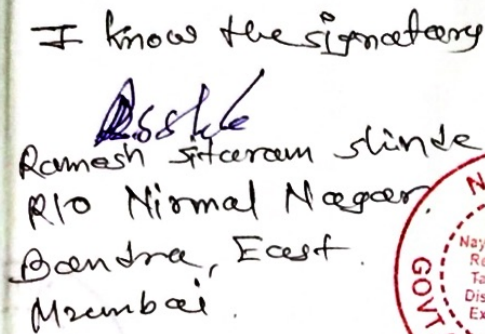 I know the signatory
Ramesh sitaram shinde
R/o Nirmal Nagar
Bandra, East.
Mumbai.
N
Nay
Re
Ta
Dis
Ex
GOVT